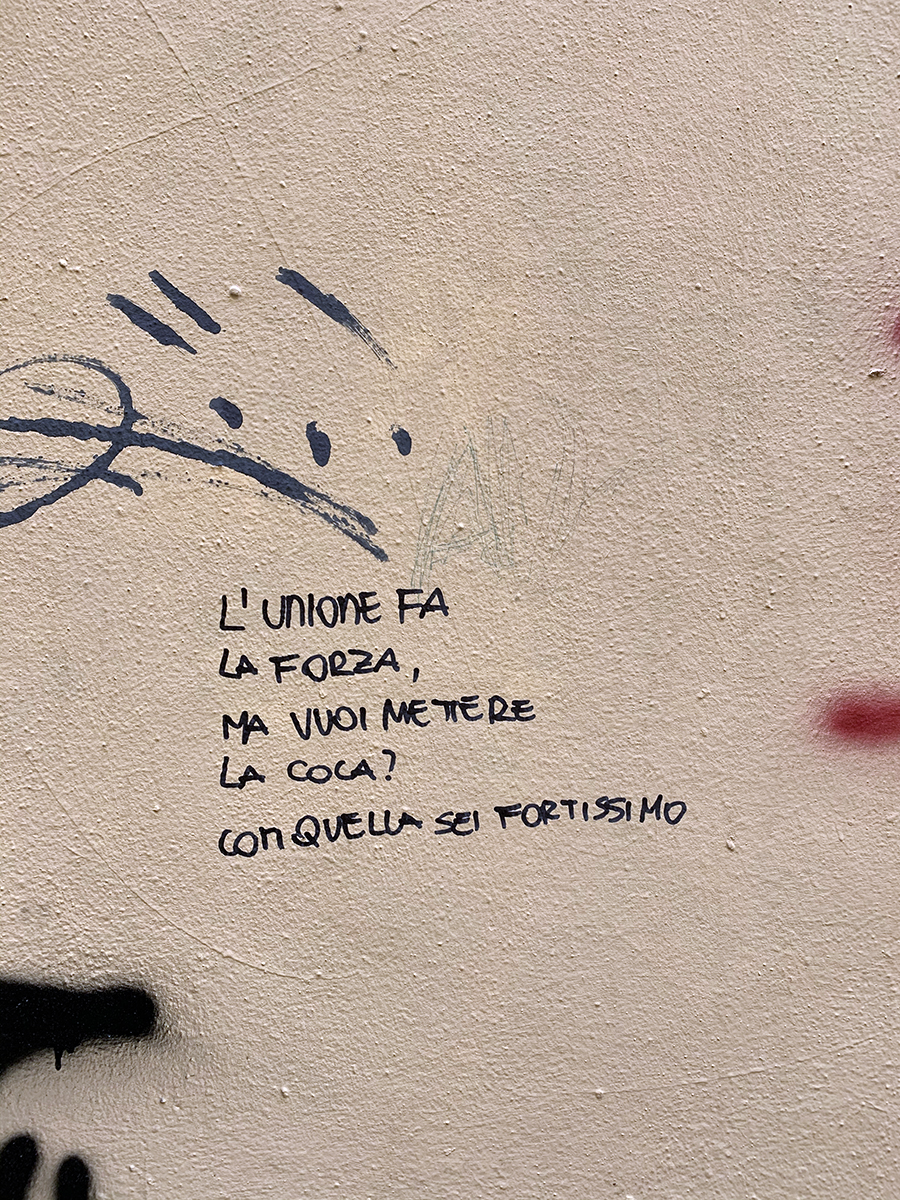 L'UNIONE FA
LA FORZA,
MA VUOI METTERE
LA COCA?
CON QUELLA SEI FORTISSIMO